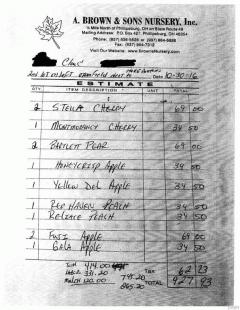 A. BROWN & SONS NURSERY, Inc.
¼ Mile North of Phillipsburg, OH on State Route 49
Mailing Address: P.O. Box 427, Phillipsburg, OH 45354
Phone: (937) 836-5826 or (937) 884-5826
Fax: (937) 884-7312
Visit Our Website: www.BrownsNursery.com
Date 10-30-16
ESTIMATE
QTY ITEM DESCRIPTION UNIT TOTAL
2 STELLA CHERRY 69 00
1 MONTMORENCY CHERRY 34 50
2 BARTLETT PEAR 69 00
1 HONEYCRISP Apple 34 50
1 Yellow Del Apple 34 50
1 RED HAVEN PEACH 34 50
1 RELIANCE PEACH 34 50
2 FUJI Apple 69 00
1 GALA Apple 34 50
414.00 Tax 62 73
331.20 745.20
Mulch 120.00 865.20 927 93